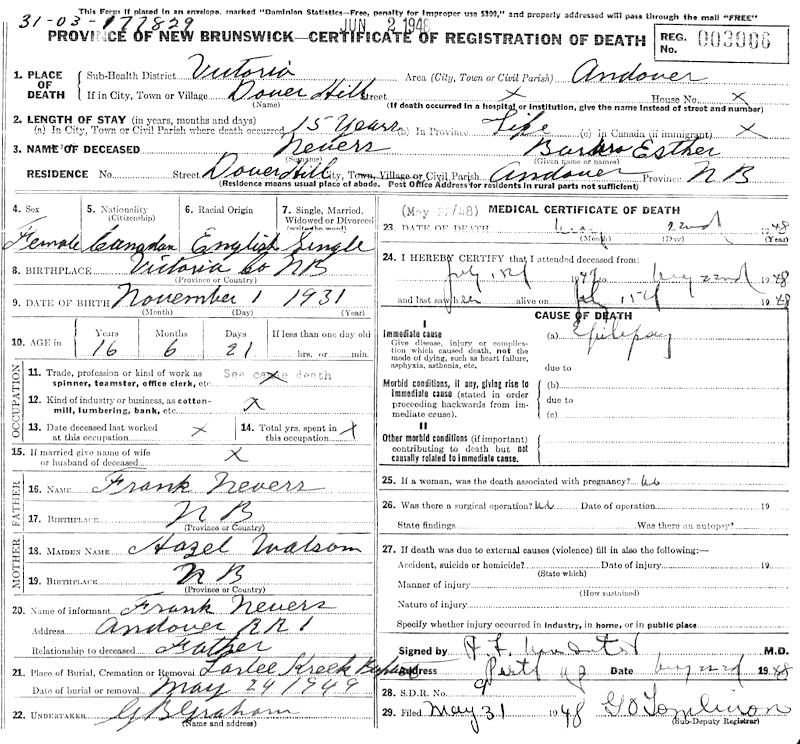 This Form if placed in an envelope, marked "Dominion Statistics—Free, penalty for improper use $300," and properly addressed will pass through the mail "FREE"
31-03-177829 JUN 2 1948
PROVINCE OF NEW BRUNSWICK—CERTIFICATE OF REGISTRATION OF DEATH
REG. No. 003006
1. PLACE OF DEATH Sub-Health District Victoria Area (City, Town or Civil Parish) Andover
If in City, Town or Village Dover Hill Street x House No. x
(Name) (If death occurred in a hospital or institution, give the name instead of street and number)
2. LENGTH OF STAY (in years, months and days)
(a) In City, Town or Civil Parish where death occurred 15 Years (b) In Province Life (c) in Canada (if immigrant) x
3. NAME OF DECEASED Nevers Esther
(Surname) (Given name or names)
RESIDENCE No. Street Dover Hill City, Town, Village or Civil Parish Andover Province NB
(Residence means usual place of abode. Post Office Address for residents in rural parts not sufficient)
4. Sex 5. Nationality (Citizenship) 6. Racial Origin 7. Single, Married, Widowed or Divorced (write the word)
Female Canadian English Single
8. BIRTHPLACE Victoria Co NB
(Province or Country)
9. DATE OF BIRTH November 1 1931
(Month) (Day) (Year)
10. AGE in Years Months Days If less than one day old
16 6 21 hrs. or min.
OCCUPATION
11. Trade, profession or kind of work as spinner, teamster, office clerk, etc. See cause death
12. Kind of industry or business, as cotton-mill, lumbering, bank, etc. x
13. Date deceased last worked at this occupation x 14. Total yrs. spent in this occupation x
15. If married give name of wife or husband of deceased x
FATHER
16. NAME Frank Nevers
17. BIRTHPLACE NB
(Province or Country)
MOTHER
18. MAIDEN NAME Hazel Watson
19. BIRTHPLACE NB
(Province or Country)
20. Name of informant Frank Nevers
Address Andover RR1
Relationship to deceased Father
21. Place of Burial, Cremation or Removal Larlee Kreek
Date of burial or removal May 24 1948
22. UNDERTAKER G B Graham
(Name and address)
(May 22/48) MEDICAL CERTIFICATE OF DEATH
23. DATE OF DEATH 22nd 1948
(Month) (Day) (Year)
24. I HEREBY CERTIFY that I attended deceased from:
July 1st 1947 to May 22nd 1948
and last saw her alive on 1948
CAUSE OF DEATH
I
Immediate cause (a) Epilepsy
Give disease, injury or complication which caused death, not the mode of dying, such as heart failure, asphyxia, asthenia, etc.
due to
Morbid conditions, if any, giving rise to immediate cause (stated in order proceeding backwards from immediate cause).
(b)
due to
(c)
II
Other morbid conditions (if important) contributing to death but not causally related to immediate cause.
25. If a woman, was the death associated with pregnancy? No
26. Was there a surgical operation? No Date of operation 19
State findings Was there an autopsy?
27. If death was due to external causes (violence) fill in also the following:—
Accident, suicide or homicide? Date of injury 19
(State which)
Manner of injury
(How sustained)
Nature of injury
Specify whether injury occurred in industry, in home, or in public place
Signed by M.D.
Address Perth Date May 22nd 1948
28. S.D.R. No.
29. Filed May 31 1948 G O Tomlinson
(Sub-Deputy Registrar)